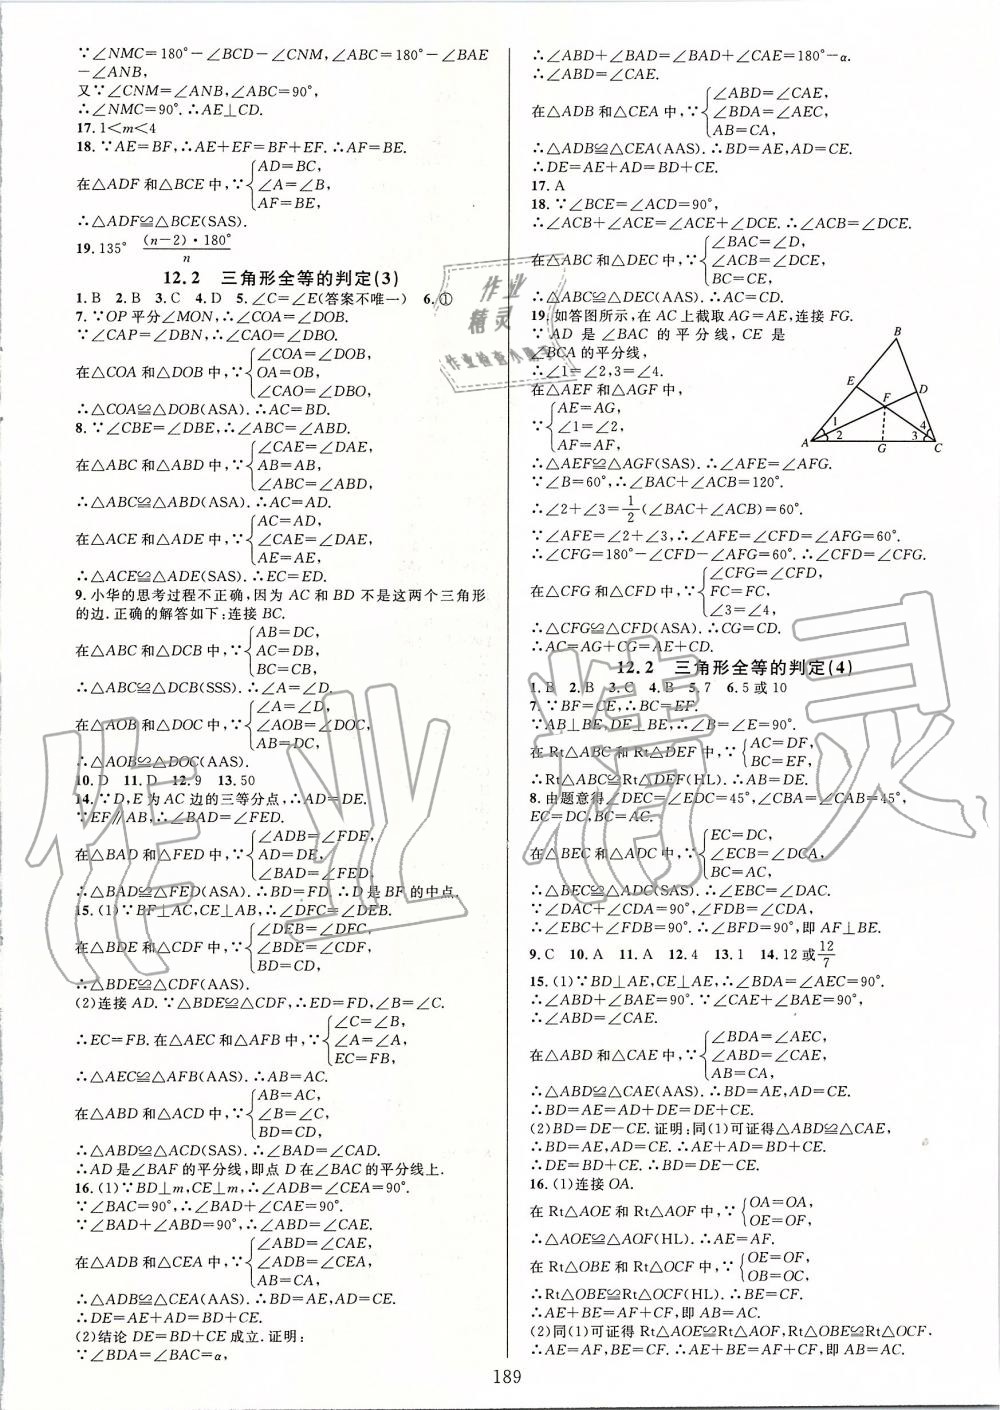 ∵∠NMC=180°-∠BCD-∠CNM,∠ABC=180°-∠BAE
-∠ANB,
又∵∠CNM=∠ANB,∠ABC=90°,
∴∠NMC=90°.∴AE⊥CD.
17.1<m<4
18.∵AE=BF,∴AE+EF=BF+EF.∴AF=BE.
在△ADF和△BCE中,∵{AD=BC,
∠A=∠B,
AF=BE,
∴△ADF≌△BCE(SAS).
19.135° (n-2)·180°/n
12.2 三角形全等的判定(3)
1.B 2.B 3.C 4.D 5.∠C=∠E(答案不唯一) 6.①
7.∵OP平分∠MON,∴∠COA=∠DOB.
∵∠CAP=∠DBN,∴∠CAO=∠DBO.
在△COA和△DOB中,∵{∠COA=∠DOB,
OA=OB,
∠CAO=∠DBO,
∴△COA≌△DOB(ASA).∴AC=BD.
8.∵∠CBE=∠DBE,∴∠ABC=∠ABD.
在△ABC和△ABD中,∵{∠CAE=∠DAE,
AB=AB,
∠ABC=∠ABD,
∴△ABC≌△ABD(ASA).∴AC=AD.
在△ACE和△ADE中,∵{AC=AD,
∠CAE=∠DAE,
AE=AE,
∴△ACE≌△ADE(SAS).∴EC=ED.
9.小华的思考过程不正确,因为AC和BD不是这两个三角形
的边.正确的解答如下:连接BC.
在△ABC和△DCB中,∵{AB=DC,
AC=DB,
BC=CB,
∴△ABC≌△DCB(SSS).∴∠A=∠D.
在△AOB和△DOC中,∵{∠A=∠D,
∠AOB=∠DOC,
AB=DC,
∴△AOB≌△DOC(AAS).
10.D 11.D 12.9 13.50
14.∵D,E为AC边的三等分点,∴AD=DE.
∵EF∥AB,∴∠BAD=∠FED.
在△BAD和△FED中,∵{∠ADB=∠FDE,
AD=DE,
∠BAD=∠FED,
∴△BAD≌△FED(ASA).∴BD=FD.∴D是BF的中点.
15.(1)∵BF⊥AC,CE⊥AB,∴∠DFC=∠DEB.
在△BDE和△CDF中,∵{∠DEB=∠DFC,
∠BDE=∠CDF,
BD=CD,
∴△BDE≌△CDF(AAS).
(2)连接AD.∵△BDE≌△CDF,∴ED=FD,∠B=∠C.
∴EC=FB.在△AEC和△AFB中,∵{∠C=∠B,
∠A=∠A,
EC=FB,
∴△AEC≌△AFB(AAS).∴AB=AC.
在△ABD和△ACD中,∵{AB=AC,
∠B=∠C,
BD=CD,
∴△ABD≌△ACD(SAS).∴∠BAD=∠CAD.
∴AD是∠BAF的平分线,即点D在∠BAC的平分线上.
16.(1)∵BD⊥m,CE⊥m,∴∠ADB=∠CEA=90°.
∵∠BAC=90°,∴∠BAD+∠CAE=90°.
∵∠BAD+∠ABD=90°,∴∠ABD=∠CAE.
在△ADB和△CEA中,∵{∠ABD=∠CAE,
∠ADB=∠CEA,
AB=CA,
∴△ADB≌△CEA(AAS).∴BD=AE,AD=CE.
∴DE=AE+AD=BD+CE.
(2)结论DE=BD+CE成立.证明:
∵∠BDA=∠BAC=α,
∴∠ABD+∠BAD=∠BAD+∠CAE=180°-α.
∴∠ABD=∠CAE.
在△ADB和△CEA中,∵{∠ABD=∠CAE,
∠BDA=∠AEC,
AB=CA,
∴△ADB≌△CEA(AAS).∴BD=AE,AD=CE.
∴DE=AE+AD=BD+CE.
17.A
18.∵∠BCE=∠ACD=90°,
∴∠ACB+∠ACE=∠ACE+∠DCE.∴∠ACB=∠DCE.
在△ABC和△DEC中,∵{∠BAC=∠D,
∠ACB=∠DCE,
BC=CE,
∴△ABC≌△DEC(AAS).∴AC=CD.
19.如答图所示,在AC上截取AG=AE,连接FG.
∵AD是∠BAC的平分线,CE是
∠BCA的平分线,
∴∠1=∠2,∠3=∠4.
在△AEF和△AGF中,
∵{AE=AG,
∠1=∠2,
AF=AF,
B
E
D
F
1
2
4
3
A
G
C
∴△AEF≌△AGF(SAS).∴∠AFE=∠AFG.
∵∠B=60°,∴∠BAC+∠ACB=120°.
∴∠2+∠3=1/2(∠BAC+∠ACB)=60°.
∵∠AFE=∠2+∠3,∴∠AFE=∠CFD=∠AFG=60°.
∴∠CFG=180°-∠CFD-∠AFG=60°.∴∠CFD=∠CFG.
在△CFG和△CFD中,∵{∠CFG=∠CFD,
FC=FC,
∠3=∠4,
∴△CFG≌△CFD(ASA).∴CG=CD.
∴AC=AG+CG=AE+CD.
12.2 三角形全等的判定(4)
1.B 2.B 3.C 4.B 5.7 6.5或10
7.∵BF=CE,∴BC=EF.
∵AB⊥BE,DE⊥BE,∴∠B=∠E=90°.
在Rt△ABC和Rt△DEF中,∵{AC=DF,
BC=EF,
∴Rt△ABC≌Rt△DEF(HL).∴AB=DE.
8.由题意得∠DEC=∠EDC=45°,∠CBA=∠CAB=45°,
EC=DC,BC=AC.
在△BEC和△ADC中,∵{EC=DC,
∠ECB=∠DCA,
BC=AC,
∴△BEC≌△ADC(SAS).∴∠EBC=∠DAC.
∵∠DAC+∠CDA=90°,∠FDB=∠CDA,
∴∠EBC+∠FDB=90°.∴∠BFD=90°,即AF⊥BE.
9.C 10.A 11.A 12.4 13.1 14.12或12/7
15.(1)∵BD⊥AE,CE⊥AE,∴∠BDA=∠AEC=90°.
∴∠ABD+∠BAE=90°.∵∠CAE+∠BAE=90°,
∴∠ABD=∠CAE.
在△ABD和△CAE中,∵{∠BDA=∠AEC,
∠ABD=∠CAE,
AB=CA,
∴△ABD≌△CAE(AAS).∴BD=AE,AD=CE.
∴BD=AE=AD+DE=DE+CE.
(2)BD=DE-CE.证明:同(1)可证得△ABD≌△CAE,
∴BD=AE,AD=CE.∴AE+AD=BD+CE.
∴DE=BD+CE.∴BD=DE-CE.
16.(1)连接OA.
在Rt△AOE和Rt△AOF中,∵{OA=OA,
OE=OF,
∴△AOE≌△AOF(HL).∴AE=AF.
在Rt△OBE和Rt△OCF中,∵{OE=OF,
OB=OC,
∴Rt△OBE≌Rt△OCF(HL).∴BE=CF.
∴AE+BE=AF+CF,即AB=AC.
(2)同(1)可证得Rt△AOE≌Rt△AOF,Rt△OBE≌Rt△OCF.
∴AE=AF,BE=CF.∴AE+BE=AF+CF,即AB=AC.
189
作业
精灵
作业检查小助手
作业精灵